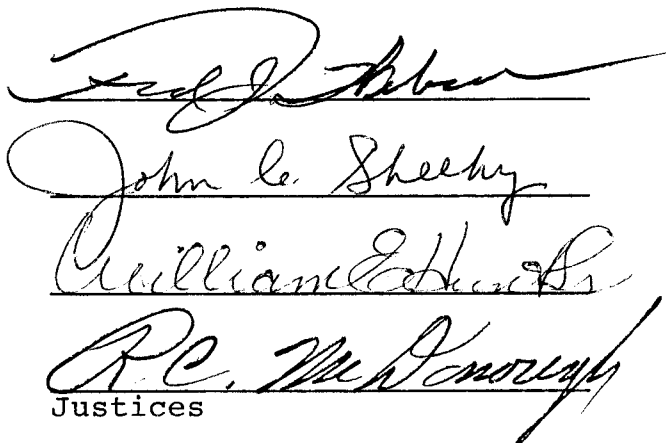 Fred J. Weber
John C. Sheehy
William E. Hunt Sr
R.C. McDonough
Justices